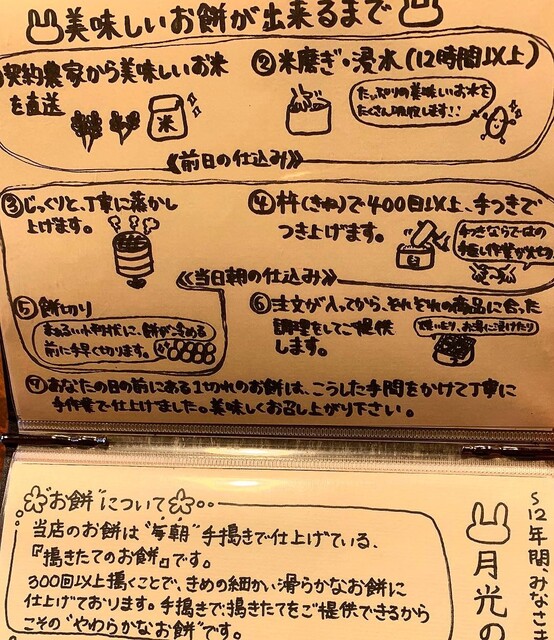 美味しいお餅が出来るまで
契約農家から美味しいお米
を直送
米
②米磨ぎ・浸水(12時間以上)
たっぷりの美味しいお水を
たくさん吸収します!!
《前日の仕込み》
③じっくりと、丁寧に蒸かし
上げます。
④杵(きね)で400回以上、手つきで
つき上げます。
手つきならではの
手返し作業が大切
《当日朝の仕込み》
⑤餅切り
まぁるい小判状に、餅が冷める
前に手早く切ります。
⑥注文が入ってから、それぞれの商品に合った
調理をしてご提供
します。
焼いたり、お湯に浸けたり
⑦あなたの目の前にある1切れのお餅は、こうした手間をかけて丁寧に
手作業で仕上げました。美味しくお召し上がり下さい。
"お餅"について
当店のお餅は"毎朝"手搗きで仕上げている、
『搗きたてのお餅』です。
300回以上搗くことで、きめの細かい滑らかなお餅に
仕上げております。手搗きで搗きたてをご提供できるから
こその"やわらかなお餅"です。
S12年間、みなさま
月光の